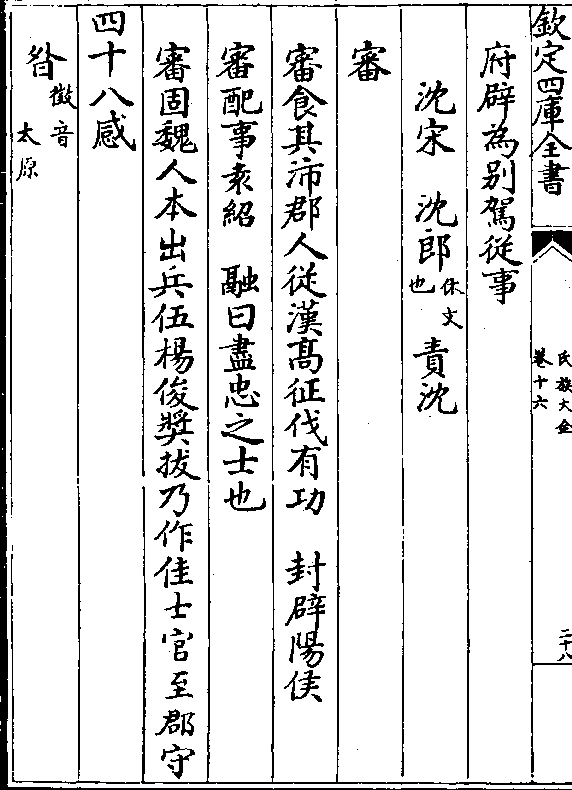 欽定四庫全書
氏族大全
卷十六
二十八
府辟為别駕從事
沈宋　沈郎休文也　責沈
審
審食其沛郡人從漢髙征伐有功　封辟陽侯
審配事袁紹　融曰盡忠之士也
審固魏人本出兵伍楊俊奬拔乃作佳士官至郡守
四十八感
昝徵音太原